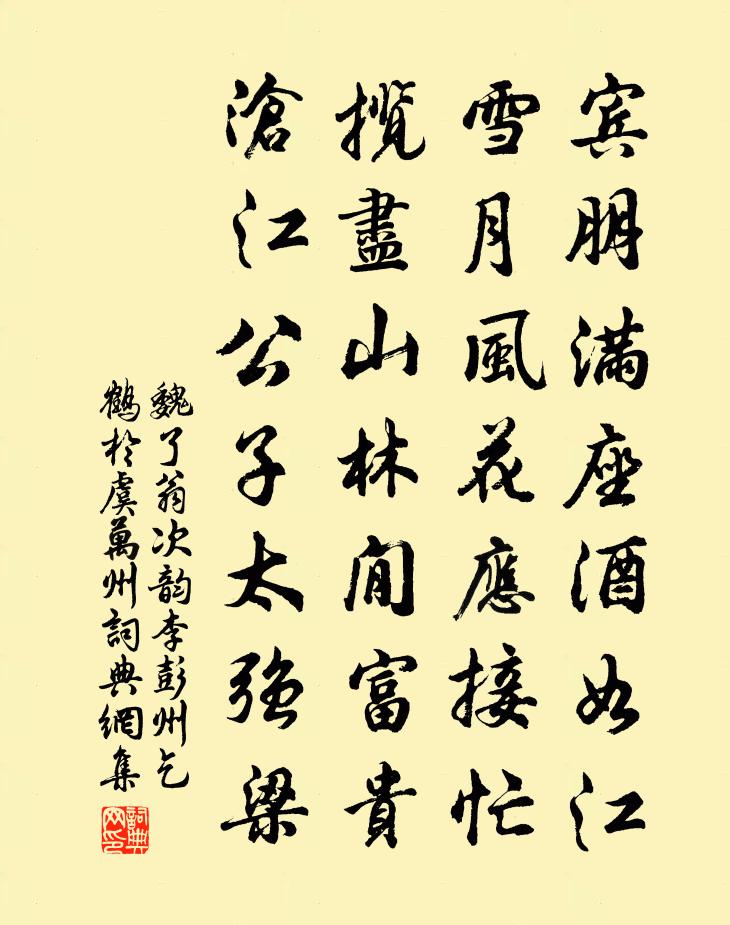 宾朋满座酒如江
雪月風花應接忙
攬盡山林閒富貴
滄江公子太强梁
魏了翁次韵李彭州乞
鶴於虞萬州詞典網集
詞典網印